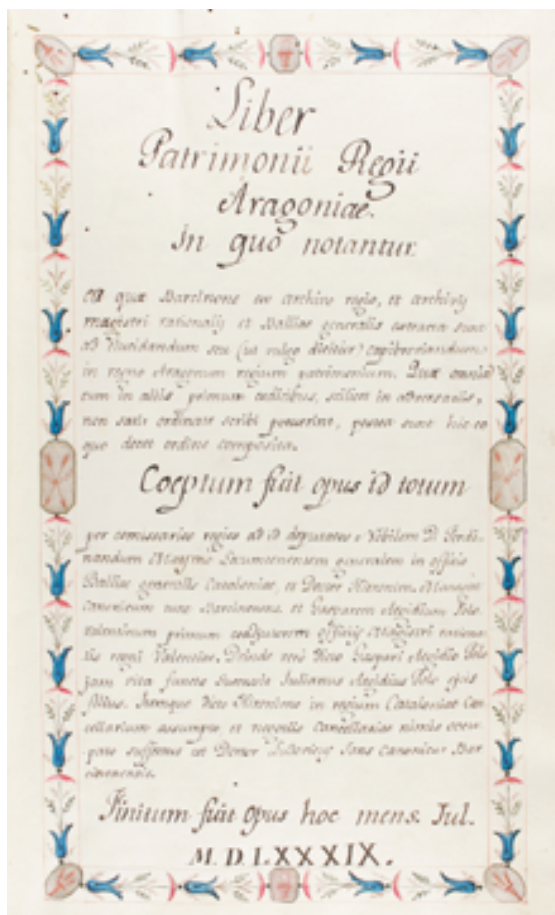 Liber
Patrimonii Regii
Aragoniae.
In quo notantur.
ea quæ Barcinone ex archivo regio, et archivis
magistri rationalis et Balliae generalis extracta sunt
ad elucidandum seu (ut vulgo dicitur)
in regno Aragonum regium patrimonium. Quæ omnia
tum in aliis primum codicibus, scilicet in adversariis,
non satis ordinate scribi potuerint, postea sunt hic eo
quo decet ordine composita.
Coeptum fuit opus id totum
per comissarios regios ad id deputatos, Nobilem D. Ferdi-
nandum generalem in officio
Balliae generalis Cataloniae, et Hieronim.
canonicum Barcinonens. et Gasparem Aegidium Polo
Valentinum primum coadjutorem officii Magistri rationa-
lis regni Valentiae. Deinde vero dicto Gaspari Aegidio Polo
jam vita functo Julianus Aegidius Polo ejus
filius. dicto Hieronimo in regium Cataloniae can-
cellarium assumpto, et cancellariae nimis occu-
pato suffectus est canonicus Bar
cinonensis.
Finitum fuit opus hoc mens. Jul.
M. D. LXXXIX.